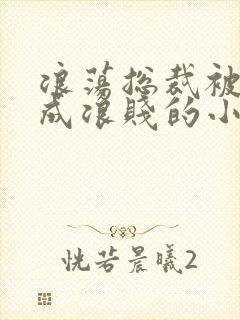 浪荡总裁被
成浪贱的小
恍若晨曦2